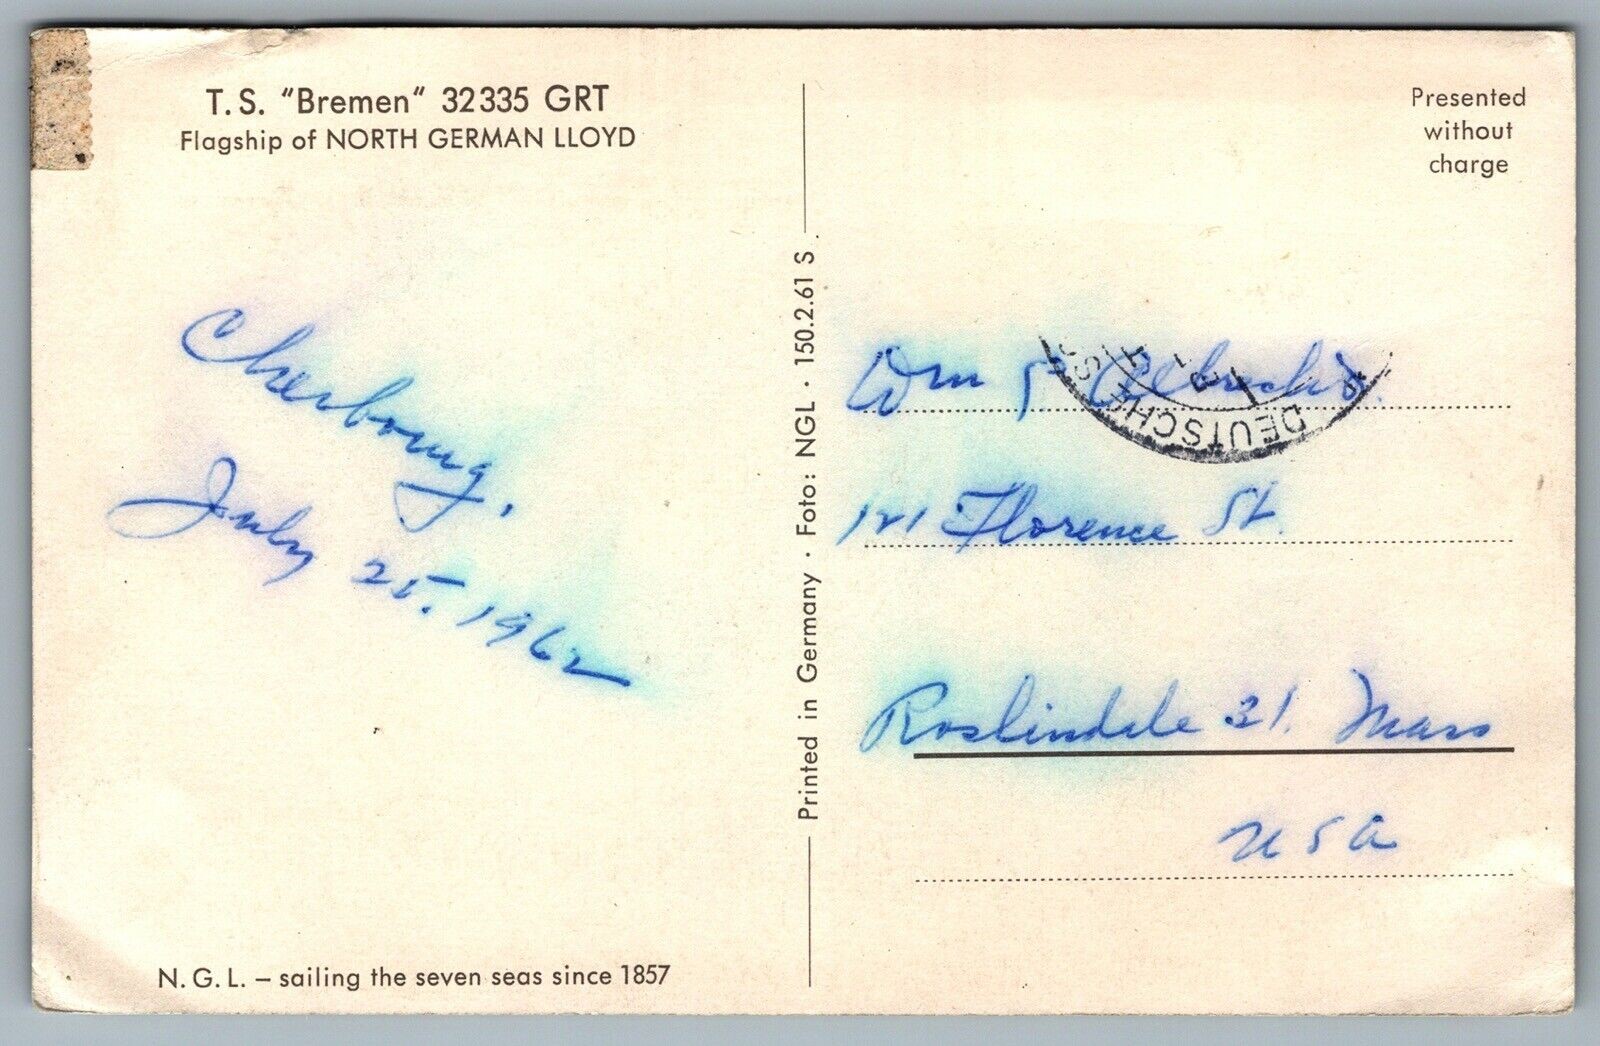 T.S. "Bremen" 32335 GRT
Flagship of NORTH GERMAN LLOYD
Cherbourg,
July 25, 1962
N.G.L. – sailing the seven seas since 1857
Printed in Germany · Foto: NGL · 150.2.61 S.
Presented
without
charge
DEUTSCHE
Wm
121 Florence St.
Roslindale 31. Mass
USA